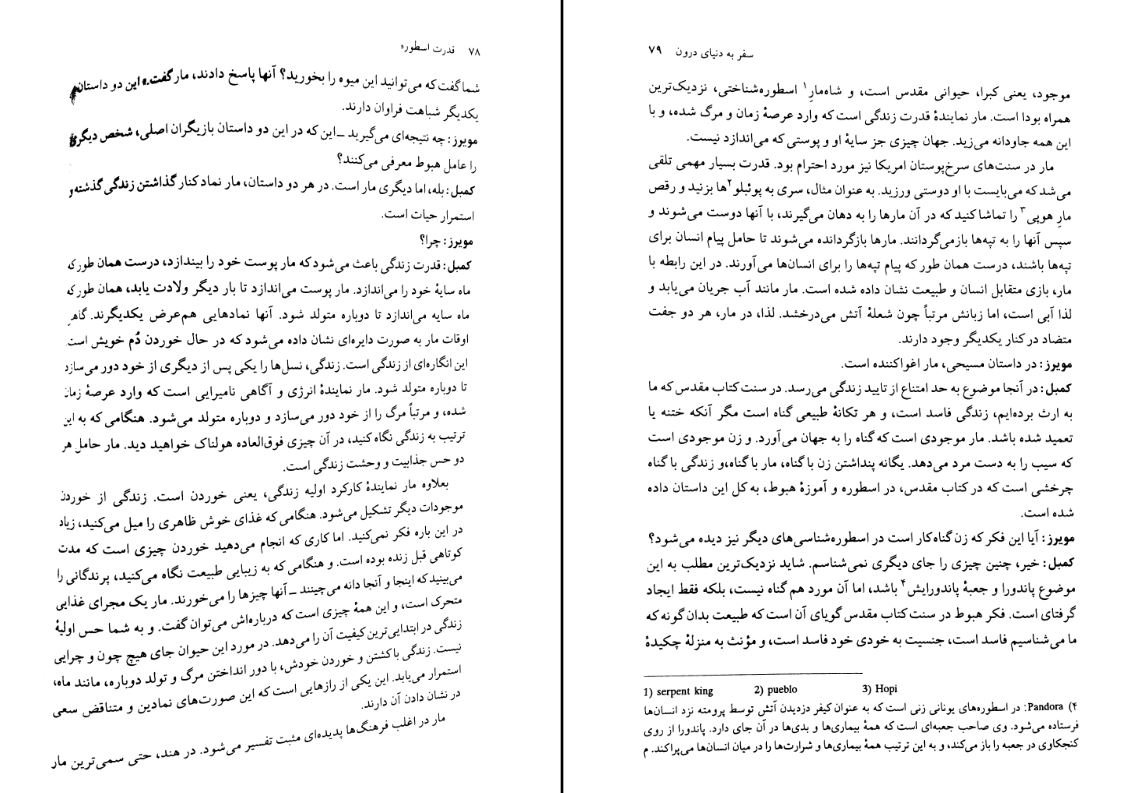 ۷۸ قدرت اسطوره
شما گفت که می‌توانید این میوه را بخورید؟ آنها پاسخ دادند، مار گفت.» این دو داستان
یکدیگر شباهت فراوان دارند.
مویرز: چه نتیجه‌ای می‌گیرید ــ این که در این دو داستان بازیگران اصلی، شخص دیگری
را عامل هبوط معرفی می‌کنند؟
کمبل: بله، اما دیگری مار است. در هر دو داستان، مار نماد کنار گذاشتن زندگی گذشته و
استمرار حیات است.
مویرز: چرا؟
کمبل: قدرت زندگی باعث می‌شود که مار پوست خود را بیندازد، درست همان طور که
ماه سایهٔ خود را می‌اندازد. مار پوست می‌اندازد تا بار دیگر ولادت یابد، همان طور که
ماه سایه می‌اندازد تا دوباره متولد شود. آنها نمادهایی هم‌عرض یکدیگرند. گاهی
اوقات مار به صورت دایره‌ای نشان داده می‌شود که در حال خوردن دُم خویش است.
این انگاره‌ای از زندگی است. زندگی، نسل‌ها را یکی پس از دیگری از خود دور می‌سازد
تا دوباره متولد شود. مار نمایندهٔ انرژی و آگاهی نامیرایی است که وارد عرصهٔ زمان
شده، و مرتباً مرگ را از خود دور می‌سازد و دوباره متولد می‌شود. هنگامی که به این
ترتیب به زندگی نگاه کنید، در آن چیزی فوق‌العاده هولناک خواهید دید. مار حامل هر
دو حس جذابیت و وحشت زندگی است.
بعلاوه مار نمایندهٔ کارکرد اولیه زندگی، یعنی خوردن است. زندگی از خوردن
موجودات دیگر تشکیل می‌شود. هنگامی که غذای خوش ظاهری را میل می‌کنید، زیاد
در این باره فکر نمی‌کنید. اما کاری که انجام می‌دهید خوردن چیزی است که مدت
کوتاهی قبل زنده بوده است. و هنگامی که به زیبایی طبیعت نگاه می‌کنید، پرندگانی را
می‌بینید که اینجا و آنجا دانه می‌چینند ــ آنها چیزها را می‌خورند. مار یک مجرای غذایی
متحرک است، و این همهٔ چیزی است که درباره‌اش می‌توان گفت. و به شما حس اولیهٔ
زندگی در ابتدایی‌ترین کیفیت آن را می‌دهد. در مورد این حیوان جای هیچ چون و چرایی
نیست. زندگی با کشتن و خوردن خودش، با دور انداختن مرگ و تولد دوباره، مانند ماه،
استمرار می‌یابد. این یکی از رازهایی است که این صورت‌های نمادین و متناقض سعی
در نشان دادن آن دارند.
مار در اغلب فرهنگ‌ها پدیده‌ای مثبت تفسیر می‌شود. در هند، حتی سمی‌ترین مار
سفر به دنیای درون ۷۹
موجود، یعنی کبرا، حیوانی مقدس است، و شاه‌مارِ۱ اسطوره‌شناختی، نزدیک‌ترین
همراه بودا است. مار نمایندهٔ قدرت زندگی است که وارد عرصهٔ زمان و مرگ شده، و با
این همه جاودانه می‌زید. جهان چیزی جز سایهٔ او و پوستی که می‌اندازد نیست.
مار در سنت‌های سرخ‌پوستان امریکا نیز مورد احترام بود. قدرت بسیار مهمی تلقی
می‌شد که می‌بایست با او دوستی ورزید. به عنوان مثال، سری به پوئبلو۲ها بزنید و رقص
مارِ هوپی۳ را تماشا کنید که در آن مارها را به دهان می‌گیرند، با آنها دوست می‌شوند و
سپس آنها را به تپه‌ها بازمی‌گردانند. مارها بازگردانده می‌شوند تا حامل پیام انسان برای
تپه‌ها باشند، درست همان طور که پیام تپه‌ها را برای انسان‌ها می‌آورند. در این رابطه با
مار، بازی متقابل انسان و طبیعت نشان داده شده است. مار مانند آب جریان می‌یابد و
لذا آبی است، اما زبانش مرتباً چون شعلهٔ آتش می‌درخشد. لذا، در مار، هر دو جفت
متضاد در کنار یکدیگر وجود دارند.
مویرز: در داستان مسیحی، مار اغواکننده است.
کمبل: در آنجا موضوع به حد امتناع از تایید زندگی می‌رسد. در سنت کتاب مقدس که ما
به ارث برده‌ایم، زندگی فاسد است، و هر تکانهٔ طبیعی گناه است مگر آنکه ختنه یا
تعمید شده باشد. مار موجودی است که گناه را به جهان می‌آورد. و زن موجودی است
که سیب را به دست مرد می‌دهد. یگانه پنداشتن زن با گناه، مار با گناه،و زندگی با گناه
چرخشی است که در کتاب مقدس، در اسطوره و آموزهٔ هبوط، به کل این داستان داده
شده است.
مویرز: آیا این فکر که زن گناه‌کار است در اسطوره‌شناسی‌های دیگر نیز دیده می‌شود؟
کمبل: خیر، چنین چیزی را جای دیگری نمی‌شناسم. شاید نزدیک‌ترین مطلب به این
موضوع پاندورا و جعبهٔ پاندورایش۴ باشد، اما آن مورد هم گناه نیست، بلکه فقط ایجاد
گرفتای است. فکر هبوط در سنت کتاب مقدس گویای آن است که طبیعت بدان گونه که
ما می‌شناسیم فاسد است، جنسیت به خودی خود فاسد است، و مؤنث به منزلهٔ چکیدهٔ
1) serpent king 2) pueblo 3) Hopi
۴) Pandora: در اسطوره‌های یونانی زنی است که به عنوان کیفر دزدیدن آتش توسط پرومته نزد انسان‌ها
فرستاده می‌شود. وی صاحب جعبه‌ای است که همهٔ بیماری‌ها و بدی‌ها در آن جای دارد. پاندورا از روی
کنجکاوی در جعبه را باز می‌کند، و به این ترتیب همهٔ بیماری‌ها و شرارت‌ها را در میان انسان‌ها می‌پراکند. م